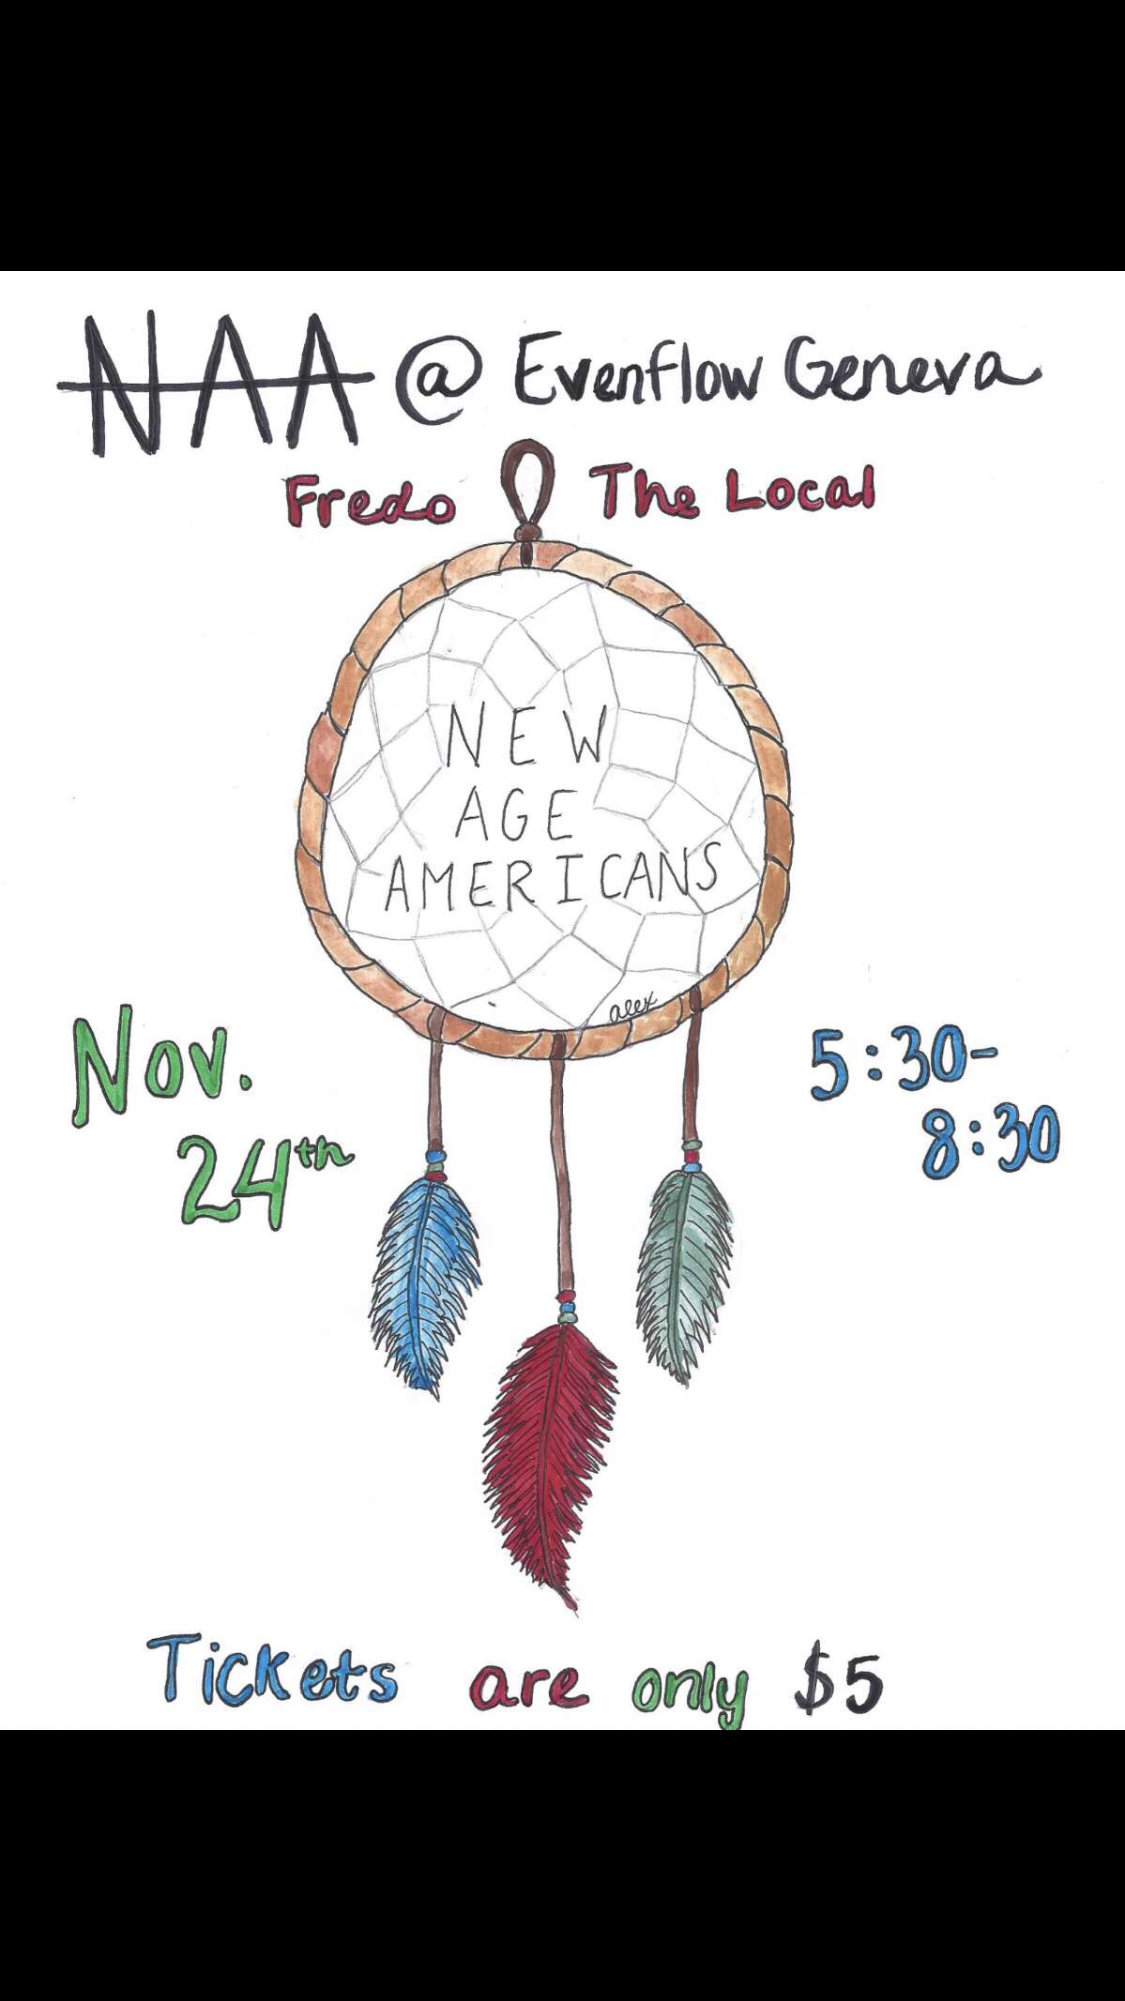 NAA @ Evenflow Geneva
Fredo The Local
NEW
AGE
AMERICANS
alex
Nov.
24th
5:30-
8:30
Tickets are only $5